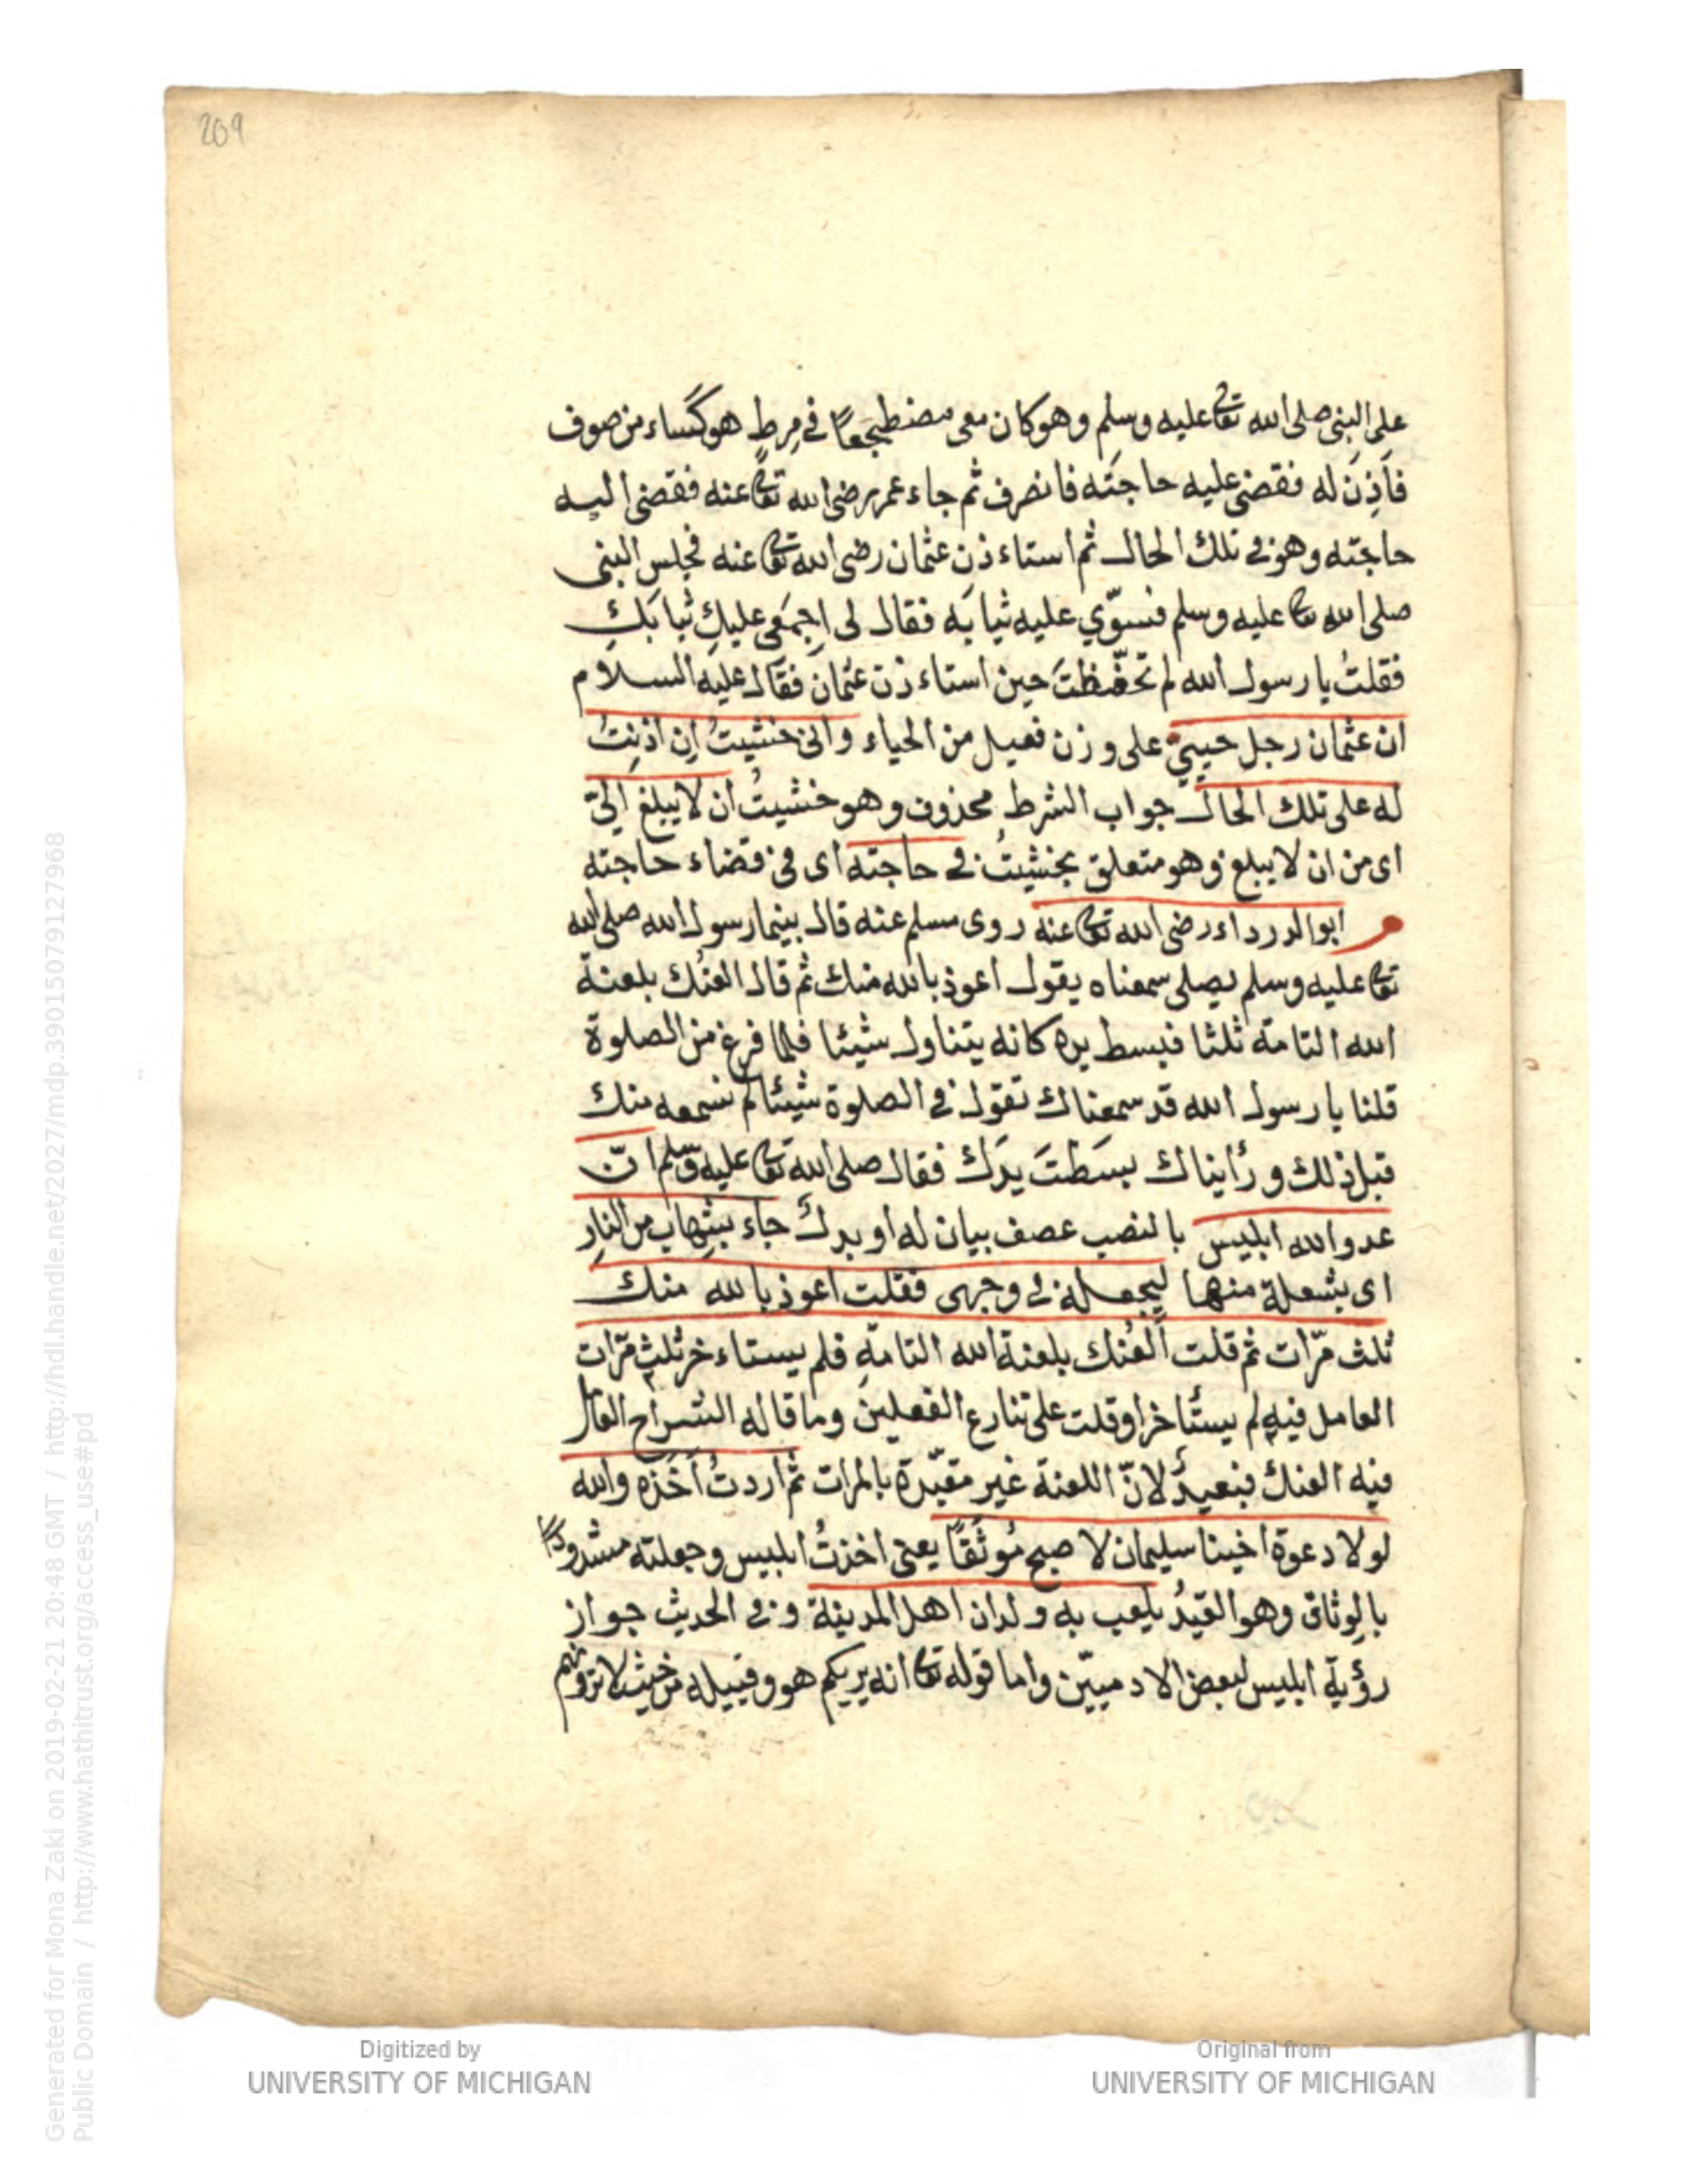 209
على النبى صلى الله تعا عليه وسلم وهو كان معى مضطجعا فى مِرطٍ هو كساء من صوف
فَاَذِنَ له فقضى عليه حاجتَه فانصرف ثم جاء عمر رضى الله تعا عنه فقضى اليه
حاجته وهو فى تلك الحال ثم استاءذن عثمان رضى الله تعا عنه فجلس النبى
صلى الله تعا عليه وسلم فسوّي عليه ثيابَه فقال لى اِجمَعى عليكِ ثيابَكِ
فقلتُ يا رسول الله لم تحفّظتَ حين استاءذن عثمان فقال عليه السلام
ان عثمان رجل حييىّ على وزن فعيل من الحياء وانى خشيتُ اِن اذِنتُ
له على تلك الحال جواب الشرط محذوف وهو خشيتُ ان لا يبلغ اِلىّ
اى من ان لا يبلغ وهو متعلق بخشيتُ فى حاجته اى فى قضاء حاجته
ابو الدرداء رضى الله تعا عنه روى مسلم عنه قال بينما رسول الله صلى الله
تعا عليه وسلم يصلى سمعناه يقول اعوذ بالله منك ثم قال العنُك بلعنة
الله التامة ثلثا فبسط يده كانه يتناول شيئا فلما فرغ من الصلوة
قلنا يا رسول الله قد سمعناك تقول فى الصلوة شيئا لم نسمعه منك
قبل ذلك ورأيناك بسَطتَ يدَك فقال صلى الله تعا عليه وسلم انّ
عدو الله ابليس بالنصب عصف بيان له او بدل جاء بشِهاب من النارِ
اى بشعلة منها ليجعله فى وجهى فقلت اعوذ بالله منك
ثلث مرّات ثم قلت اَلعُنك بلعنة الله التامّةِ فلم يستاءخر ثلث مرّات
العامل فيه لم يستأخر او قلت على تنازع الفعلين وما قاله الشراح العامل
فيه العنك فبعيدٌ لانّ اللعنة غير مقيّدة بالمرات ثم اردتُ اَخذه والله
لولا دعوة اخينا سليمان لاصبح مُوثَقًا يعنى اخذتُ ابليس وجعلته مشدودًا
بالوِثاق وهو القيدُ يلعب به ولدان اهل المدينة وفى الحديث جواز
رؤية ابليس لبعض الادميّين واما قوله تعا انه يريكم هو وقبيله من حيث لا ترونهم
Digitized by
UNIVERSITY OF MICHIGAN
Original from
UNIVERSITY OF MICHIGAN
Generated for Mona Zaki on 2019-02-21 20:48 GMT / http://hdl.handle.net/2027/mdp.39015079127968
Public Domain / http://www.hathitrust.org/access_use#pd